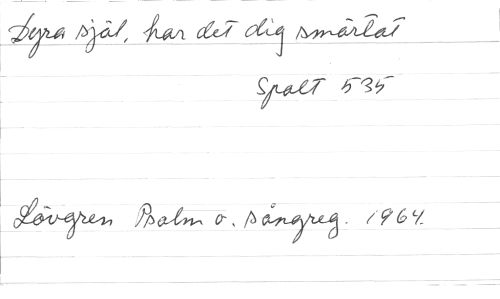 Dyra själ, har det dig smärtat
Spalt 535
Lövgren Psalm o. sångreg. 1964.